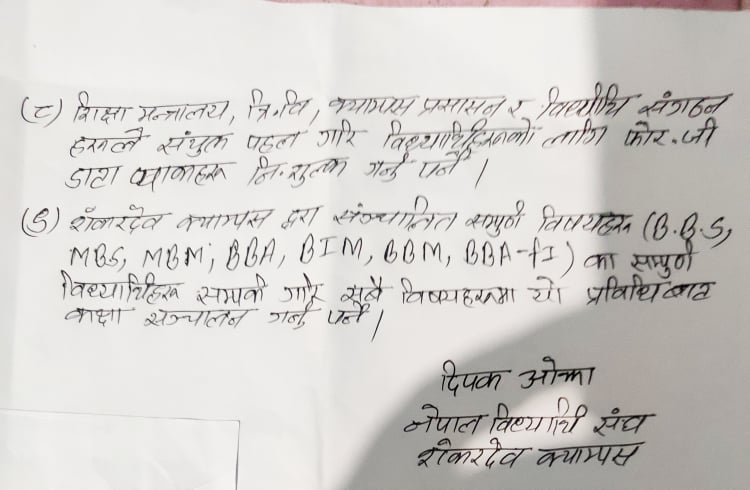 (८) शिक्षा मन्त्रालय, त्रि.वि, क्याम्पस प्रसासन र विद्यार्थि संगठन
हरुले संयुक्त पहल गरि विद्यार्थिहरुको लागि फोर.जी
डाटा प्याकहरु नि.शुल्क गर्नु पर्ने ।
(९) शंकरदेव क्याम्पस द्वारा सञ्चालित सम्पुर्ण विषयहरु (B.B.S,
MBS, MBM, BBA, BIM, BBM, BBA-fI) का सम्पुर्ण
विद्यार्थिहरु सम्पर्क गरि सबै विषयहरुमा यो प्रविधि बाट
कक्षा सञ्चालन गर्नु पर्ने ।
दिपक ओझा
नेपाल विद्यार्थि संघ
शंकरदेव क्याम्पस